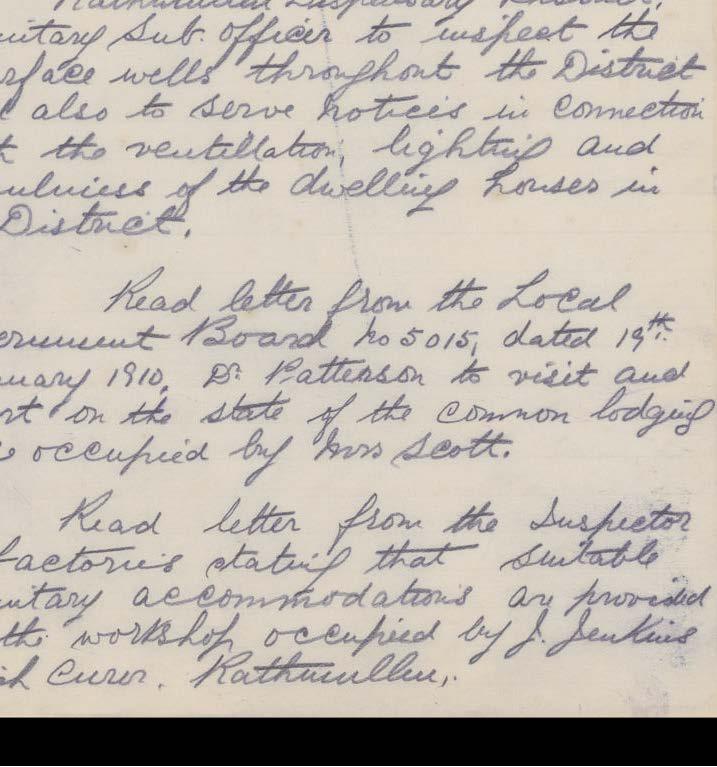 Rathmullan Dispensary District,
nitary Sub. officer to inspect the
rface wells throughout the District
also to serve notices in connection
th the ventillation, lighting and
anliness of the dwelling houses in
District.
Read letter from the Local
ernment Board No 5015, dated 19th
nuary 1910, Dr. Patterson to visit and
ort on the state of the common lodging
e occupied by Mrs Scott.
Read letter from the Inspector
Factories stating that suitable
nitary accommodations are provided
the workshop occupied by J. Jenkins
sh Curer. Rathmullan,.